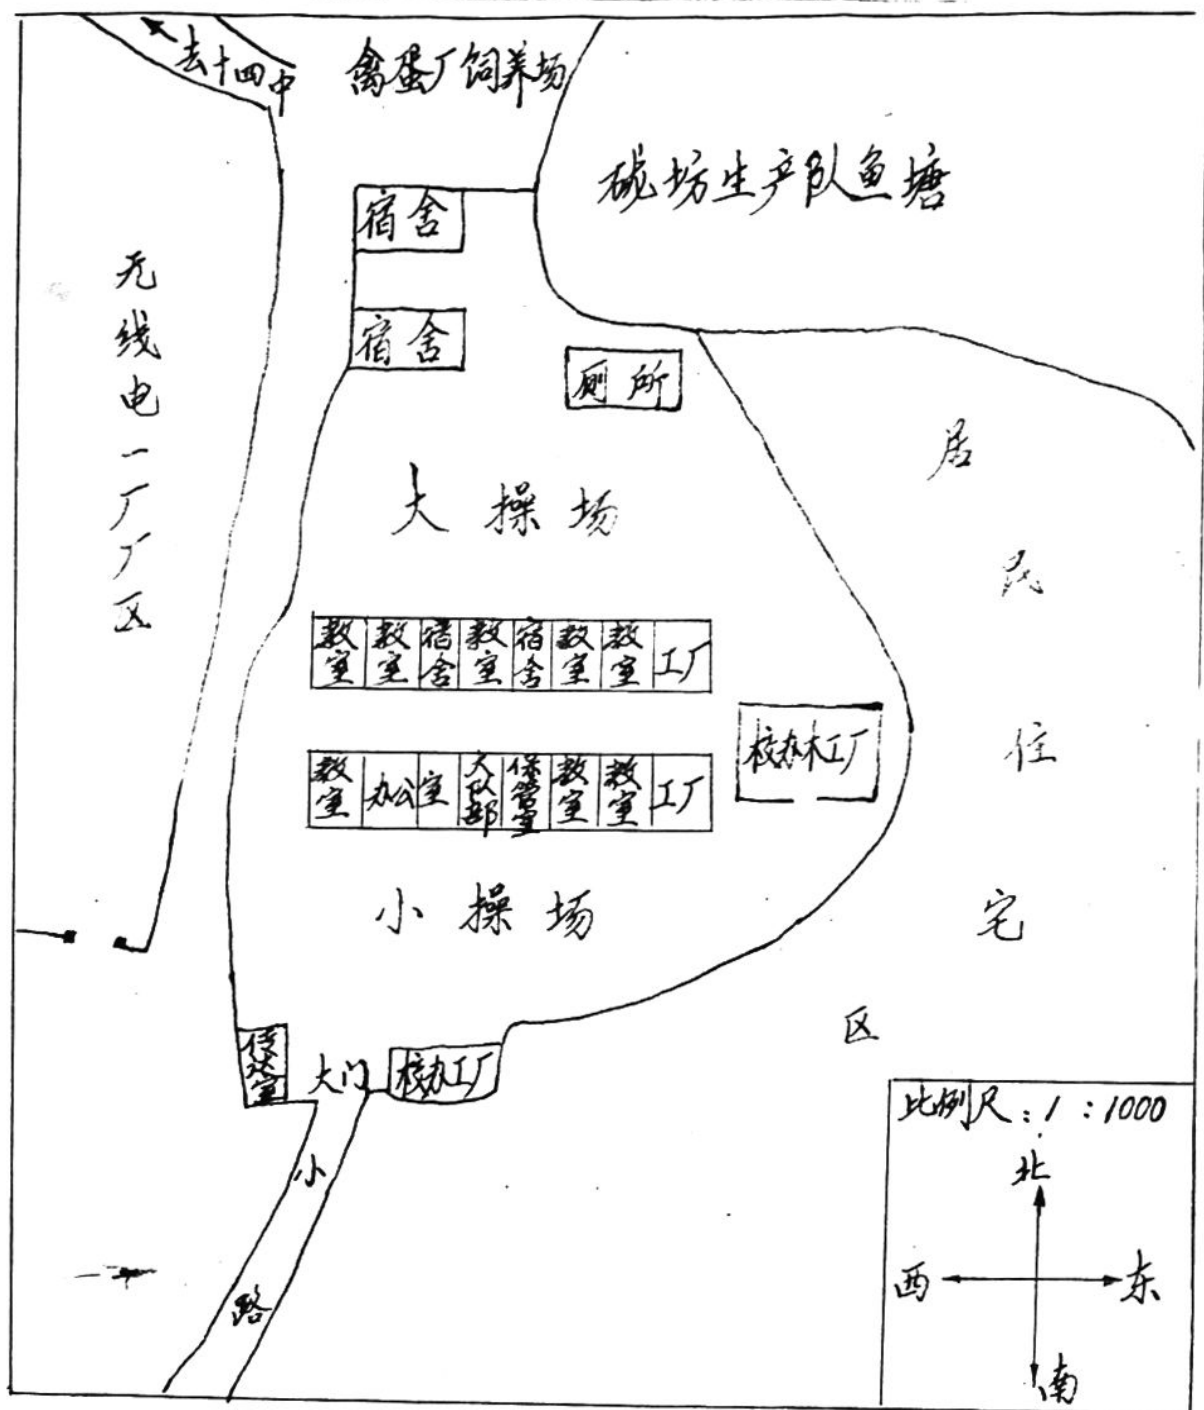 去十四中
禽蛋厂饲养场
硫坊生产队鱼塘
无线电一厂厂区
宿舍
宿舍
厕所
居民住宅区
大操场
教室 教室 宿舍 教室 宿舍 教室 教室 工厂
校办木工厂
教室 办公室 大队部 保管室 教室 教室 工厂
小操场
传达室
大门
校办工厂
小路
比例尺:1:1000
北
西
东
南